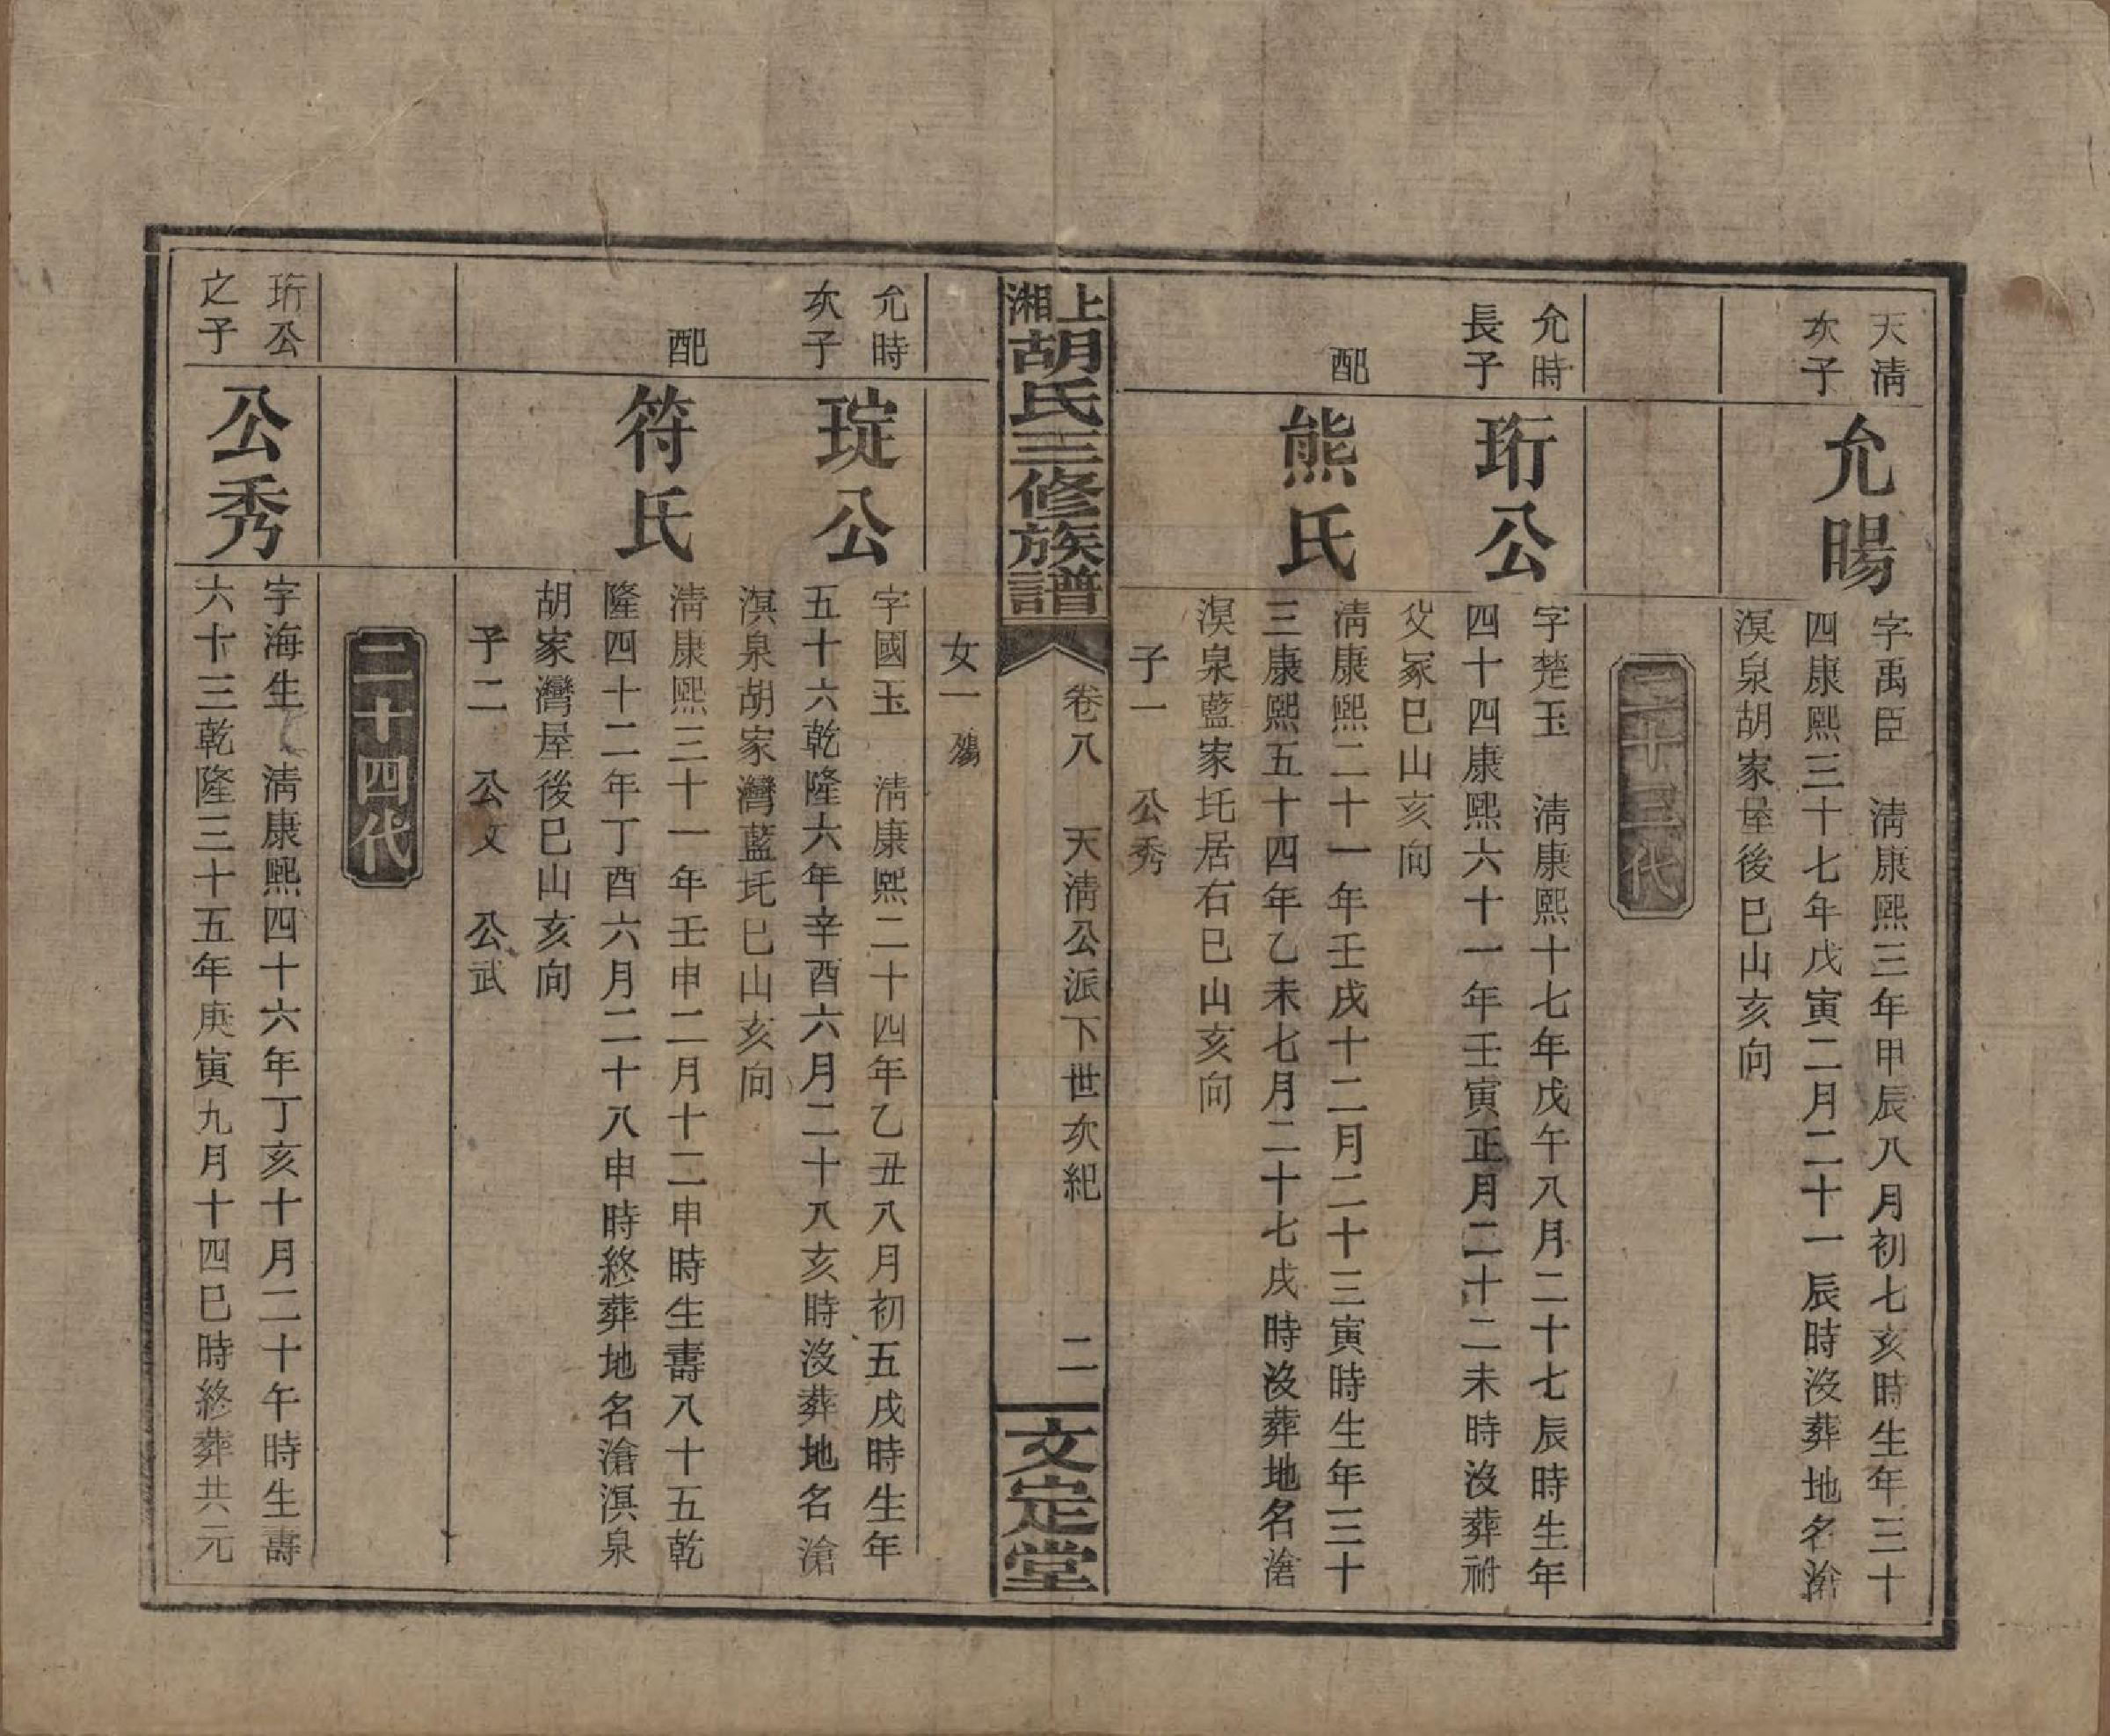 天清
次子
允暘
字禹臣　清康熙三年甲辰八月初七亥時生年三十
四康熙三十七年戊寅二月二十一辰時沒葬地名滄
溟泉胡家屋後巳山亥向
二十三代
允時
長子
珩公
字楚玉　清康熙十七年戊午八月二十七辰時生年
四十四康熙六十一年壬寅正月二十二未時沒葬祔
父冢巳山亥向
配
熊氏
清康熙二十一年壬戌十二月二十三寅時生年三十
三康熙五十四年乙未七月二十七戌時沒葬地名滄
溟泉藍家圫居右巳山亥向
子一　公秀
上湘胡氏三修族譜
卷八　天清公派下世次紀　二
文定堂
女一
允時
次子
琔公
字國玉　清康熙二十四年乙丑八月初五戌時生年
五十六乾隆六年辛酉六月二十八亥時沒葬地名滄
溟泉胡家灣藍圫巳山亥向
配
符氏
清康熙三十一年壬申二月十二申時生壽八十五乾
隆四十二年丁酉六月二十八申時終葬地名滄溟泉
胡家灣屋後巳山亥向
子二　公文　公武
二十四代
珩公
之子
公秀
字海生　清康熙四十六年丁亥十月二十午時生壽
六十三乾隆三十五年庚寅九月十四巳時終葬共元